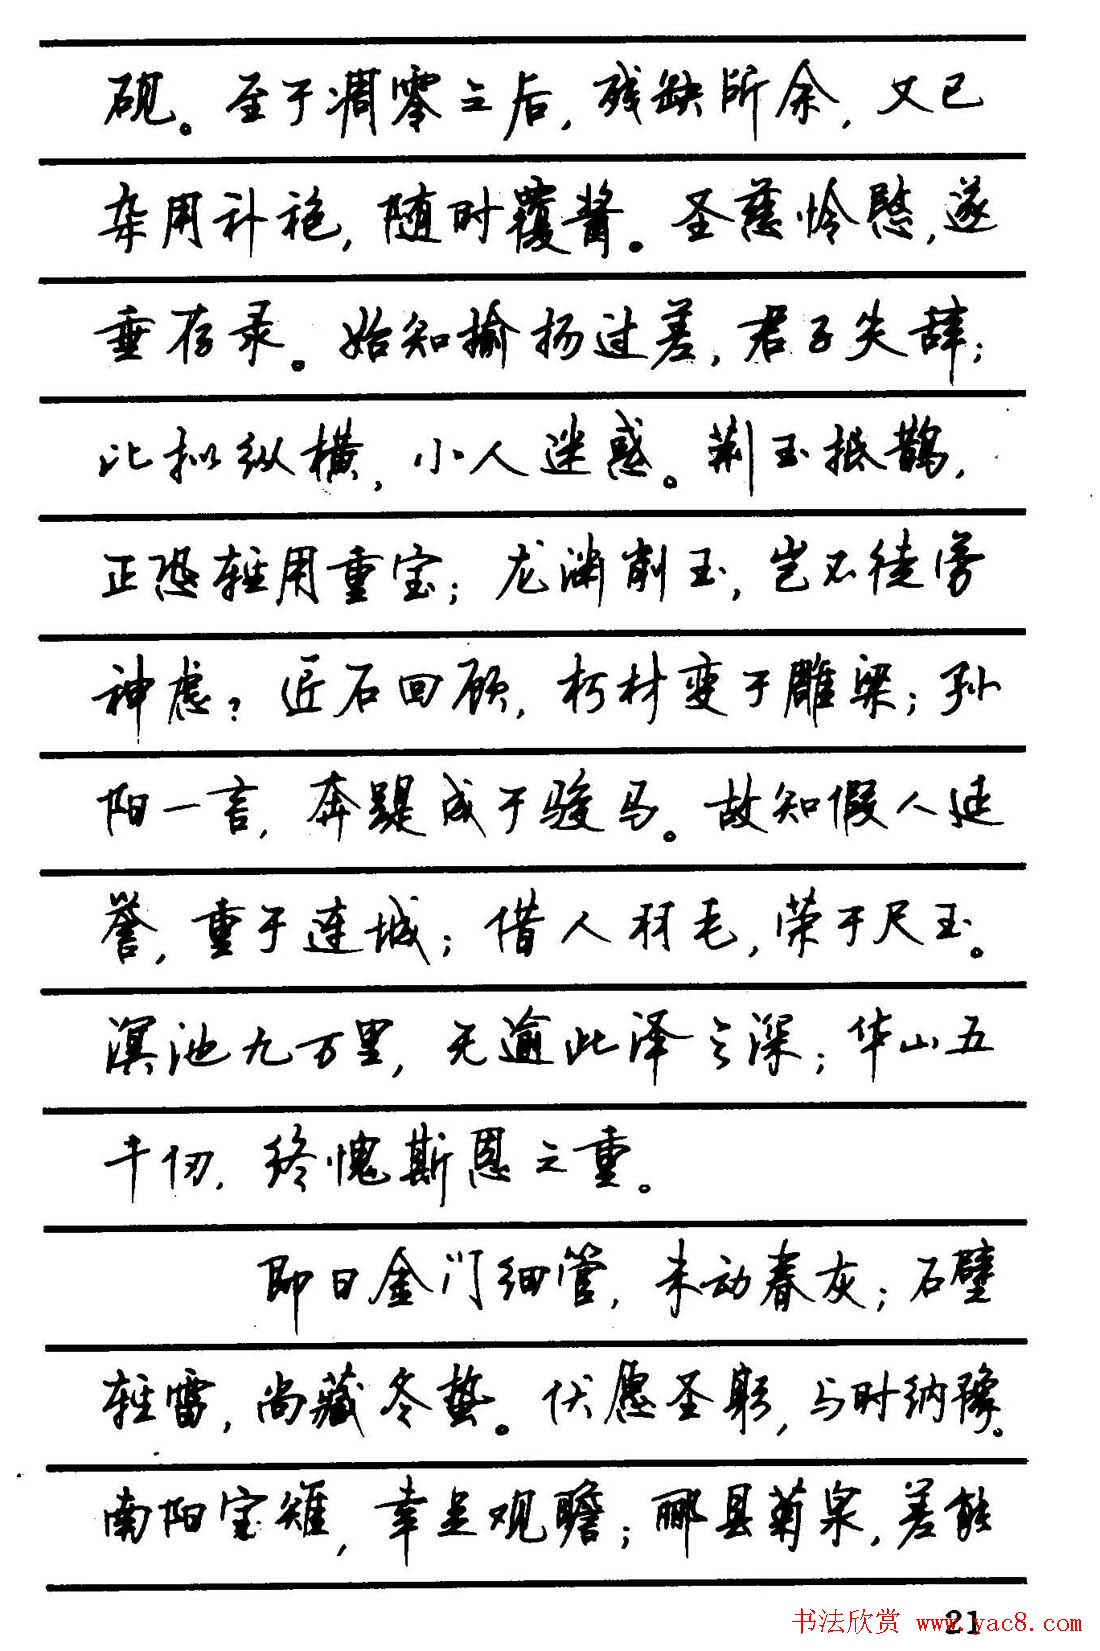 砚。至于凋零之后，残缺所余，又已
杂用补袍，随时覆酱。圣慈怜愍，遂
垂存录。始知揄扬过差，君子失辞；
比拟纵横，小人迷惑。荆玉抵鹊，
正恐轻用重宝；龙渊削玉，岂不徒劳
神虑？匠石回顾，朽材变于雕梁；孙
阳一言，奔踶成于骏马。故知假人延
誉，重于连城；借人羽毛，荣于尺玉。
溟池九万里，无逾此泽之深；华山五
千仞，终愧斯恩之重。
即日金门细管，未动春灰；石壁
轻雷，尚藏冬蛰。伏愿圣躬，与时纳豫。
南阳宝雉，幸足观瞻；郦县菊泉，差能
21
书法欣赏 www.yac8.com